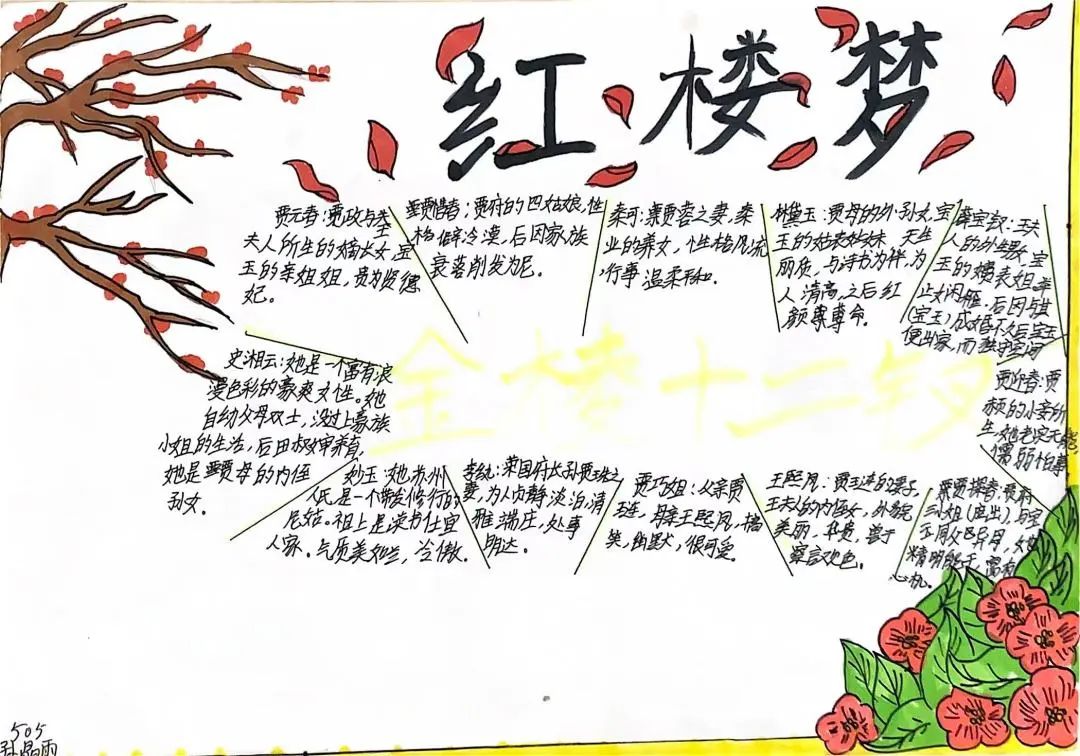 红楼梦
贾元春:贾政与王
夫人所生的嫡长女,宝
玉的亲姐姐,员为贤德
妃。
贾惜春;贾府的四姑娘,性
格僻冷漠,后因家族
衰落削发为尼。
秦可:贾蓉之妻,秦
业的养女,性格风流
,行事温柔平和。
林黛玉:贾母的外孙女,宝
玉的姑表妹妹 天生
丽质,与诗书为伴,为
人清高,之后红
颜薄命。
薛宝钗:王夫
人的外甥女,宝
玉的姨表姐,举
止女闲雅.后因与其
(宝玉)成婚不久后宝玉
便出家,而独守空闺
金楼十二钗
史湘云:她是一个富有浪
漫色彩的豪爽女性。她
自幼父母双士,没过上豪族
小姐的生活,后由叔婶养育,
她是贾母的内侄
孙女。
贾迎春:贾
赦的小妾所
生,她老实无能,
懦弱怕事
妙玉:她苏州
人氏,是一个带发修行的
尼姑。祖上是读书仕宦
人家.气质美如兰,冷傲.
李纨:荣国府长孙贾珠之
妻,为人贞静淡泊,清
雅端庄,处事
明达。
贾巧姐:父亲贾
王连,母亲王熙凤,搞
笑,幽默,很可爱.
王熙凤:贾琏的妻子,
王夫人的内侄女,外貌
美丽,华贵,善于
察言欢色.
贾探春:贾府
三小姐(庶出),与宝
玉同父异母,
精明能干,富有
心机.
505
孙晶雨